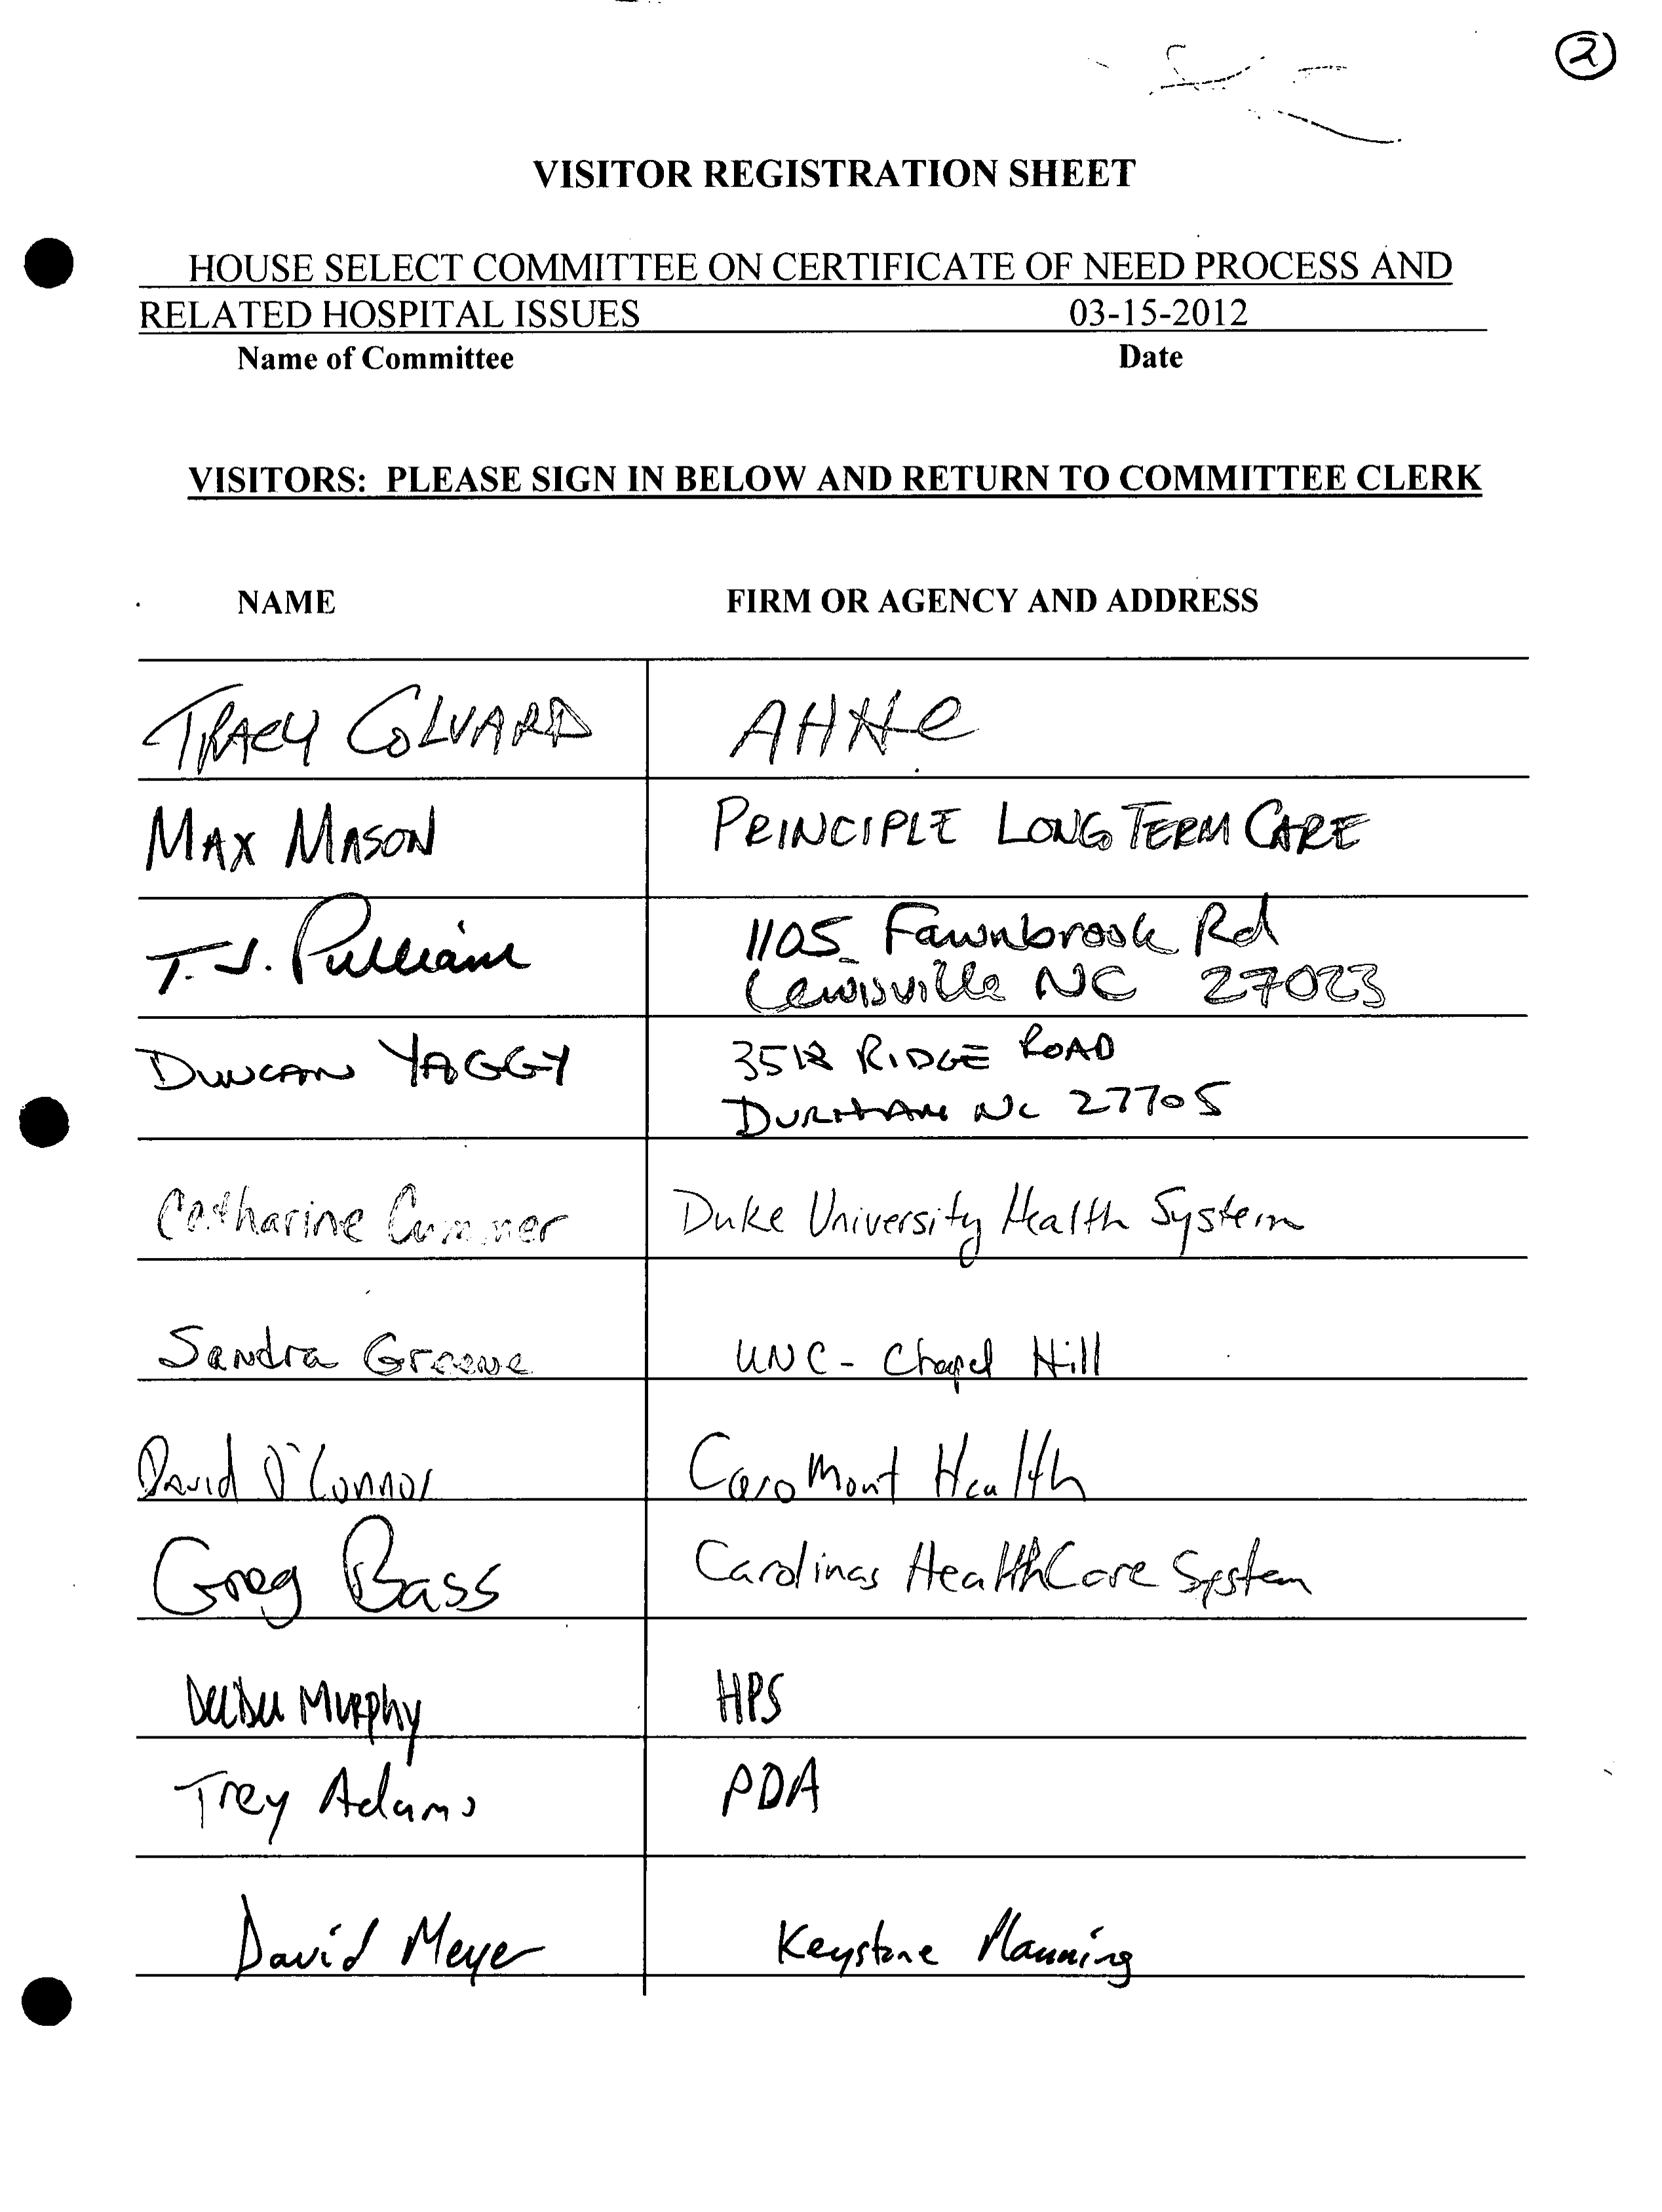 2
VISITOR REGISTRATION SHEET
HOUSE SELECT COMMITTEE ON CERTIFICATE OF NEED PROCESS AND
RELATED HOSPITAL ISSUES 03-15-2012
Name of Committee Date
VISITORS: PLEASE SIGN IN BELOW AND RETURN TO COMMITTEE CLERK
NAME FIRM OR AGENCY AND ADDRESS
TRACY COLVARD AHHC
MAX MASON PRINCIPLE LONG TERM CARE
T. J. Pulliam 1105 Fawnbrook Rd
Lewisville NC 27023
DUNCAN YAGGY RIDGE ROAD
DURHAM NC 27705
Catharine Cummer Duke University Health System
Sandra Greene UNC - Chapel Hill
David O'Connor CaroMont Health
Greg Bass Carolinas HealthCare System
Murphy HPS
Trey Adams PDA
David Meyer Keystone Planning